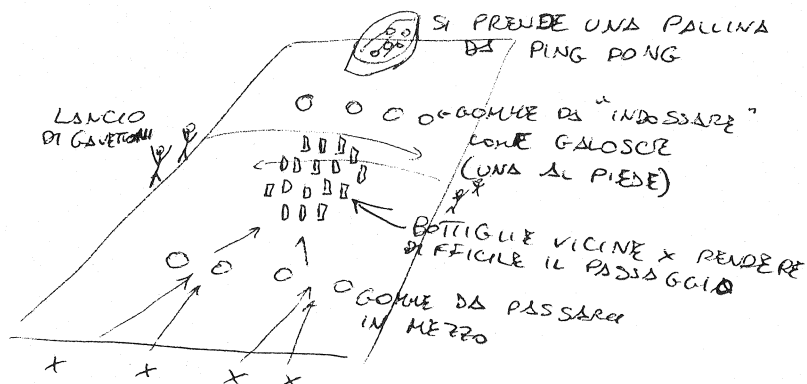 SI PRENDE UNA PALLINA
DA PING PONG
LANCIO
DI GAVETTONI
GOMME DA "INDOSSARE"
COME GALOSCE
(UNA AL PIEDE)
BOTTIGLIE VICINE X RENDERE
DIFFICILE IL PASSAGGIO
GOMME DA PASSARCI
IN MEZZO
X X X X